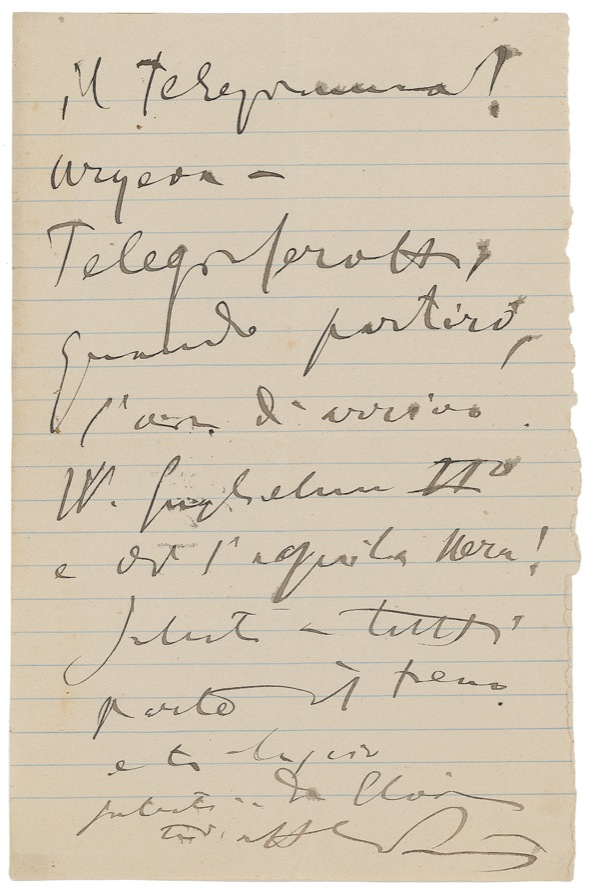 il Telegramma!
urgeva –
Telegraferotti,
quando partirò,
l'ora di arrivo.
W. Guglielmo IIo
e l'aquila Nera!
Saluti a tutti
parte il treno.
e ti lascio
saluti da Elvira
tuo aff